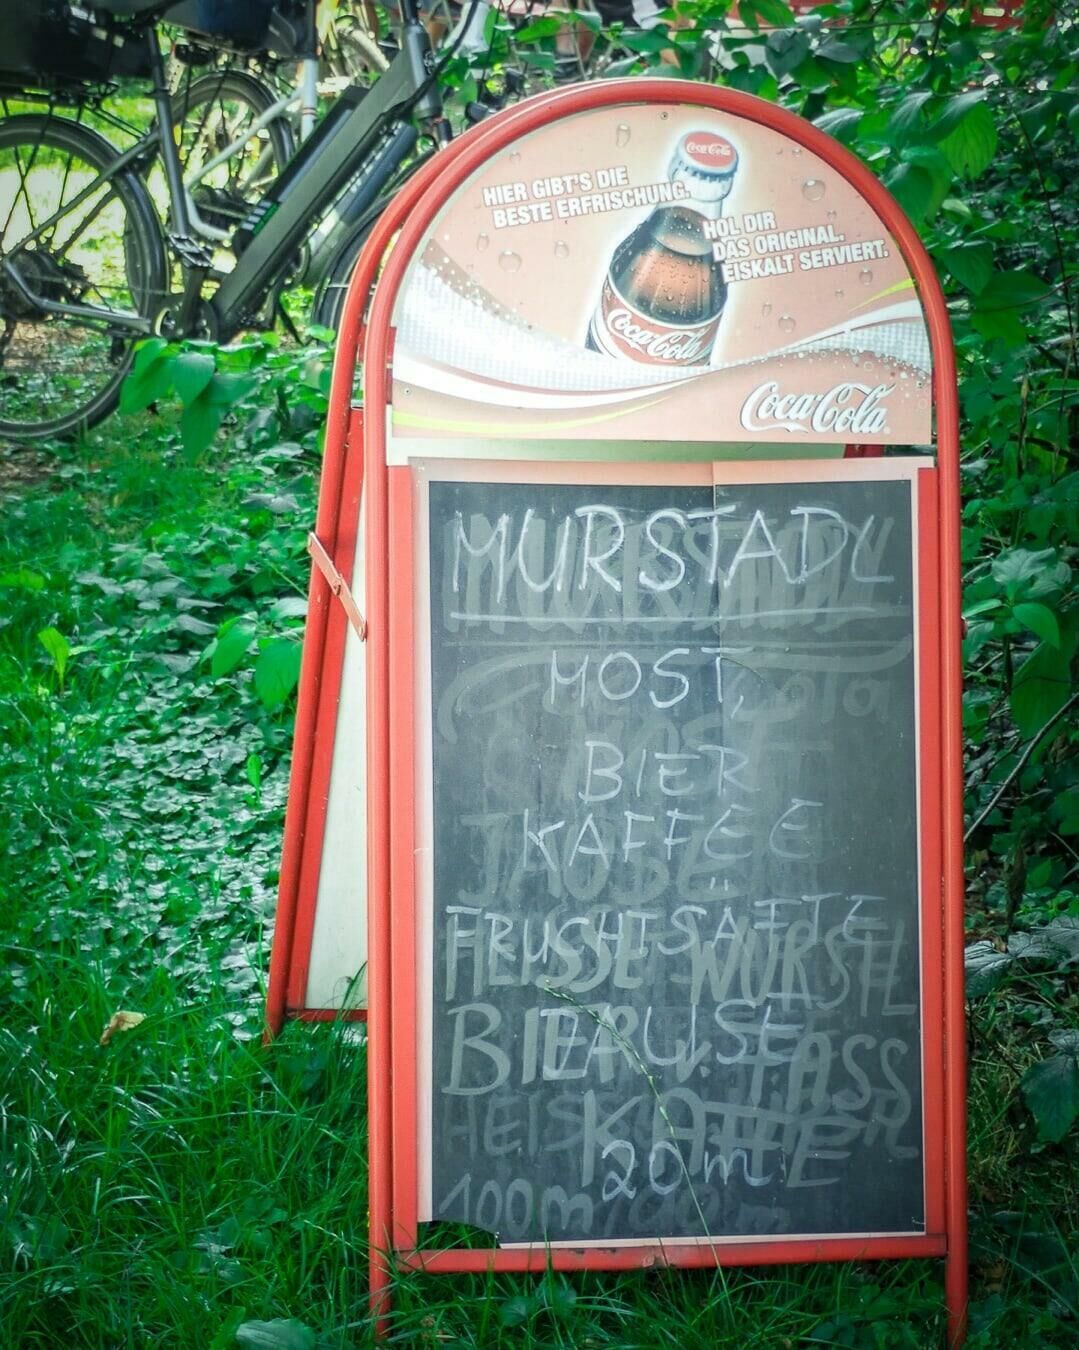 Coca-Cola
HIER GIBT'S DIE
BESTE ERFRISCHUNG.
HOL DIR
DAS ORIGINAL.
EISKALT SERVIERT.
Coca-Cola
Coca-Cola
MURSTADL
MOST,
BIER
KAFFEE
FRUCHTSÄFTE
HEISSE WÜRSTL
BIER V. FASS
KAFFEE
20m
100m